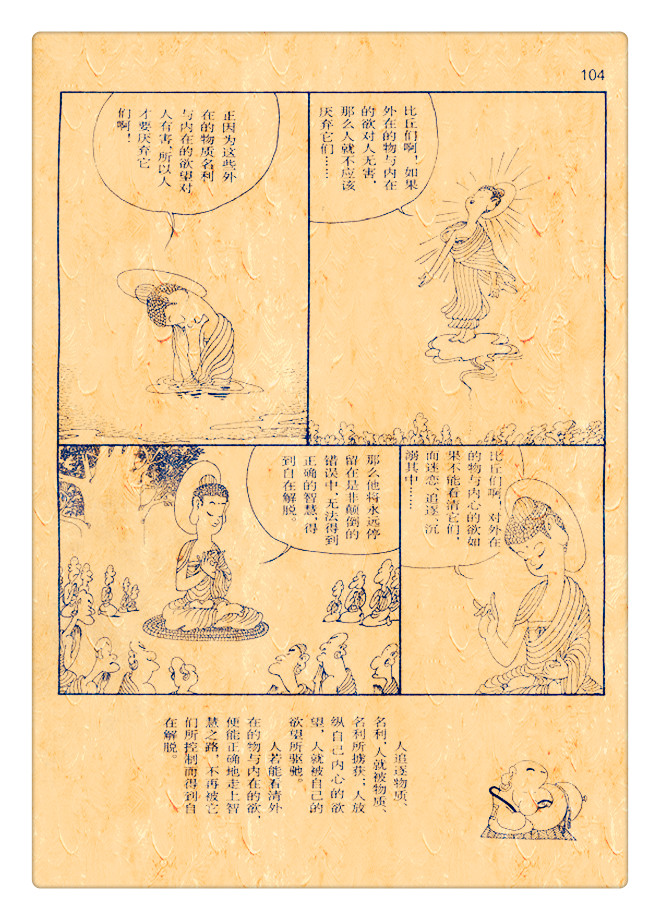 104
比丘们啊，如果
外在的物与内在
的欲对人无害，
那么人就不应该
厌弃它们……
正因为这些外
在的物质名利
与内在的欲望对
人有害，所以人
才要厌弃它
们啊！
比丘们啊，对外在
的物与内心的欲如
果不能看清它们，
而迷恋、追逐、沉
溺其中……
那么他将永远停
留在是非颠倒的
错误中，无法得到
正确的智慧，得
到自在解脱。
人追逐物质、
名利，人就被物质、
名利所掳获；人放
纵自己内心的欲
望，人就被自己的
欲望所驱驰。
人若能看清外
在的物与内在的欲，
便能正确地走上智
慧之路，不再被它
们所控制而得到自
在解脱。